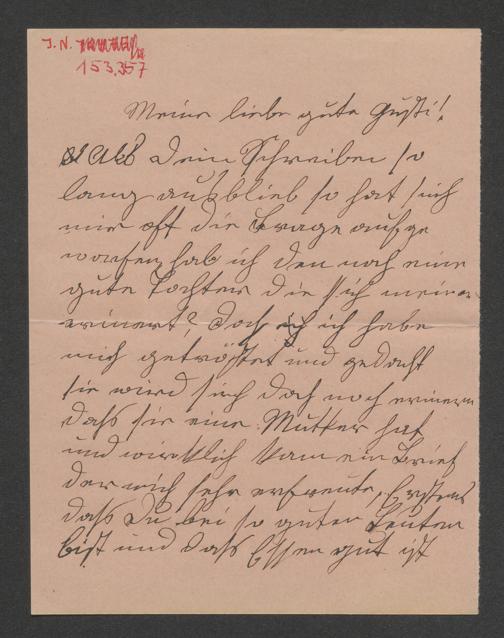 J. N.
153.357
Meine liebe gute Gusti!
Als Dein Schreiben so
lang ausblieb so hat sich
mir oft die Frage aufge
worfen hab ich den noch eine
gute Tochter die sich meiner
erinert? Doch ich habe
mich getröstet und gedacht
sie wird sich doch noch erinern
dass sie eine Mutter hat
und wirklich kam ein Brief
der mich sehr erfreute, Erstens
dass Du bei so guten Leuten
bist und dass Essen gut ist